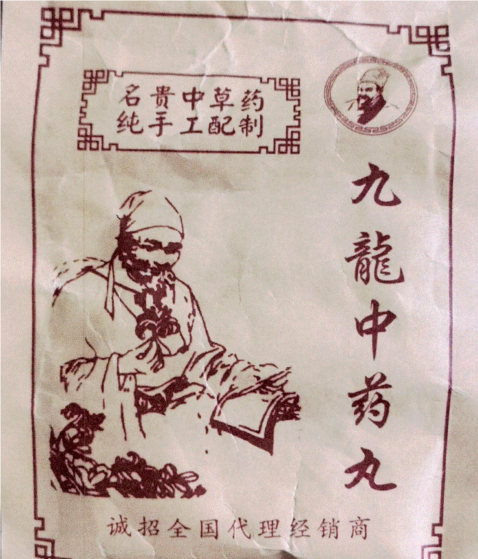 名贵中草药
纯手工配制
九龍中药丸
诚招全国代理经销商